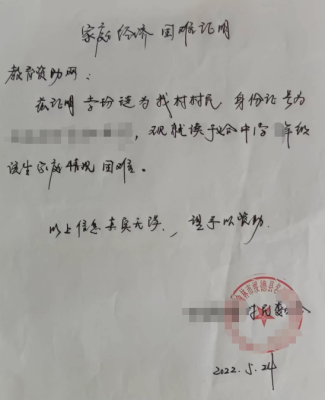 家庭经济困难证明
教育资助网：
兹证明 为我村村民 身份证号为
，现就读于 中学 年级
该生家庭情况困难。
以上信息真实无误，望予以资助
村民委 会
2022.5.24